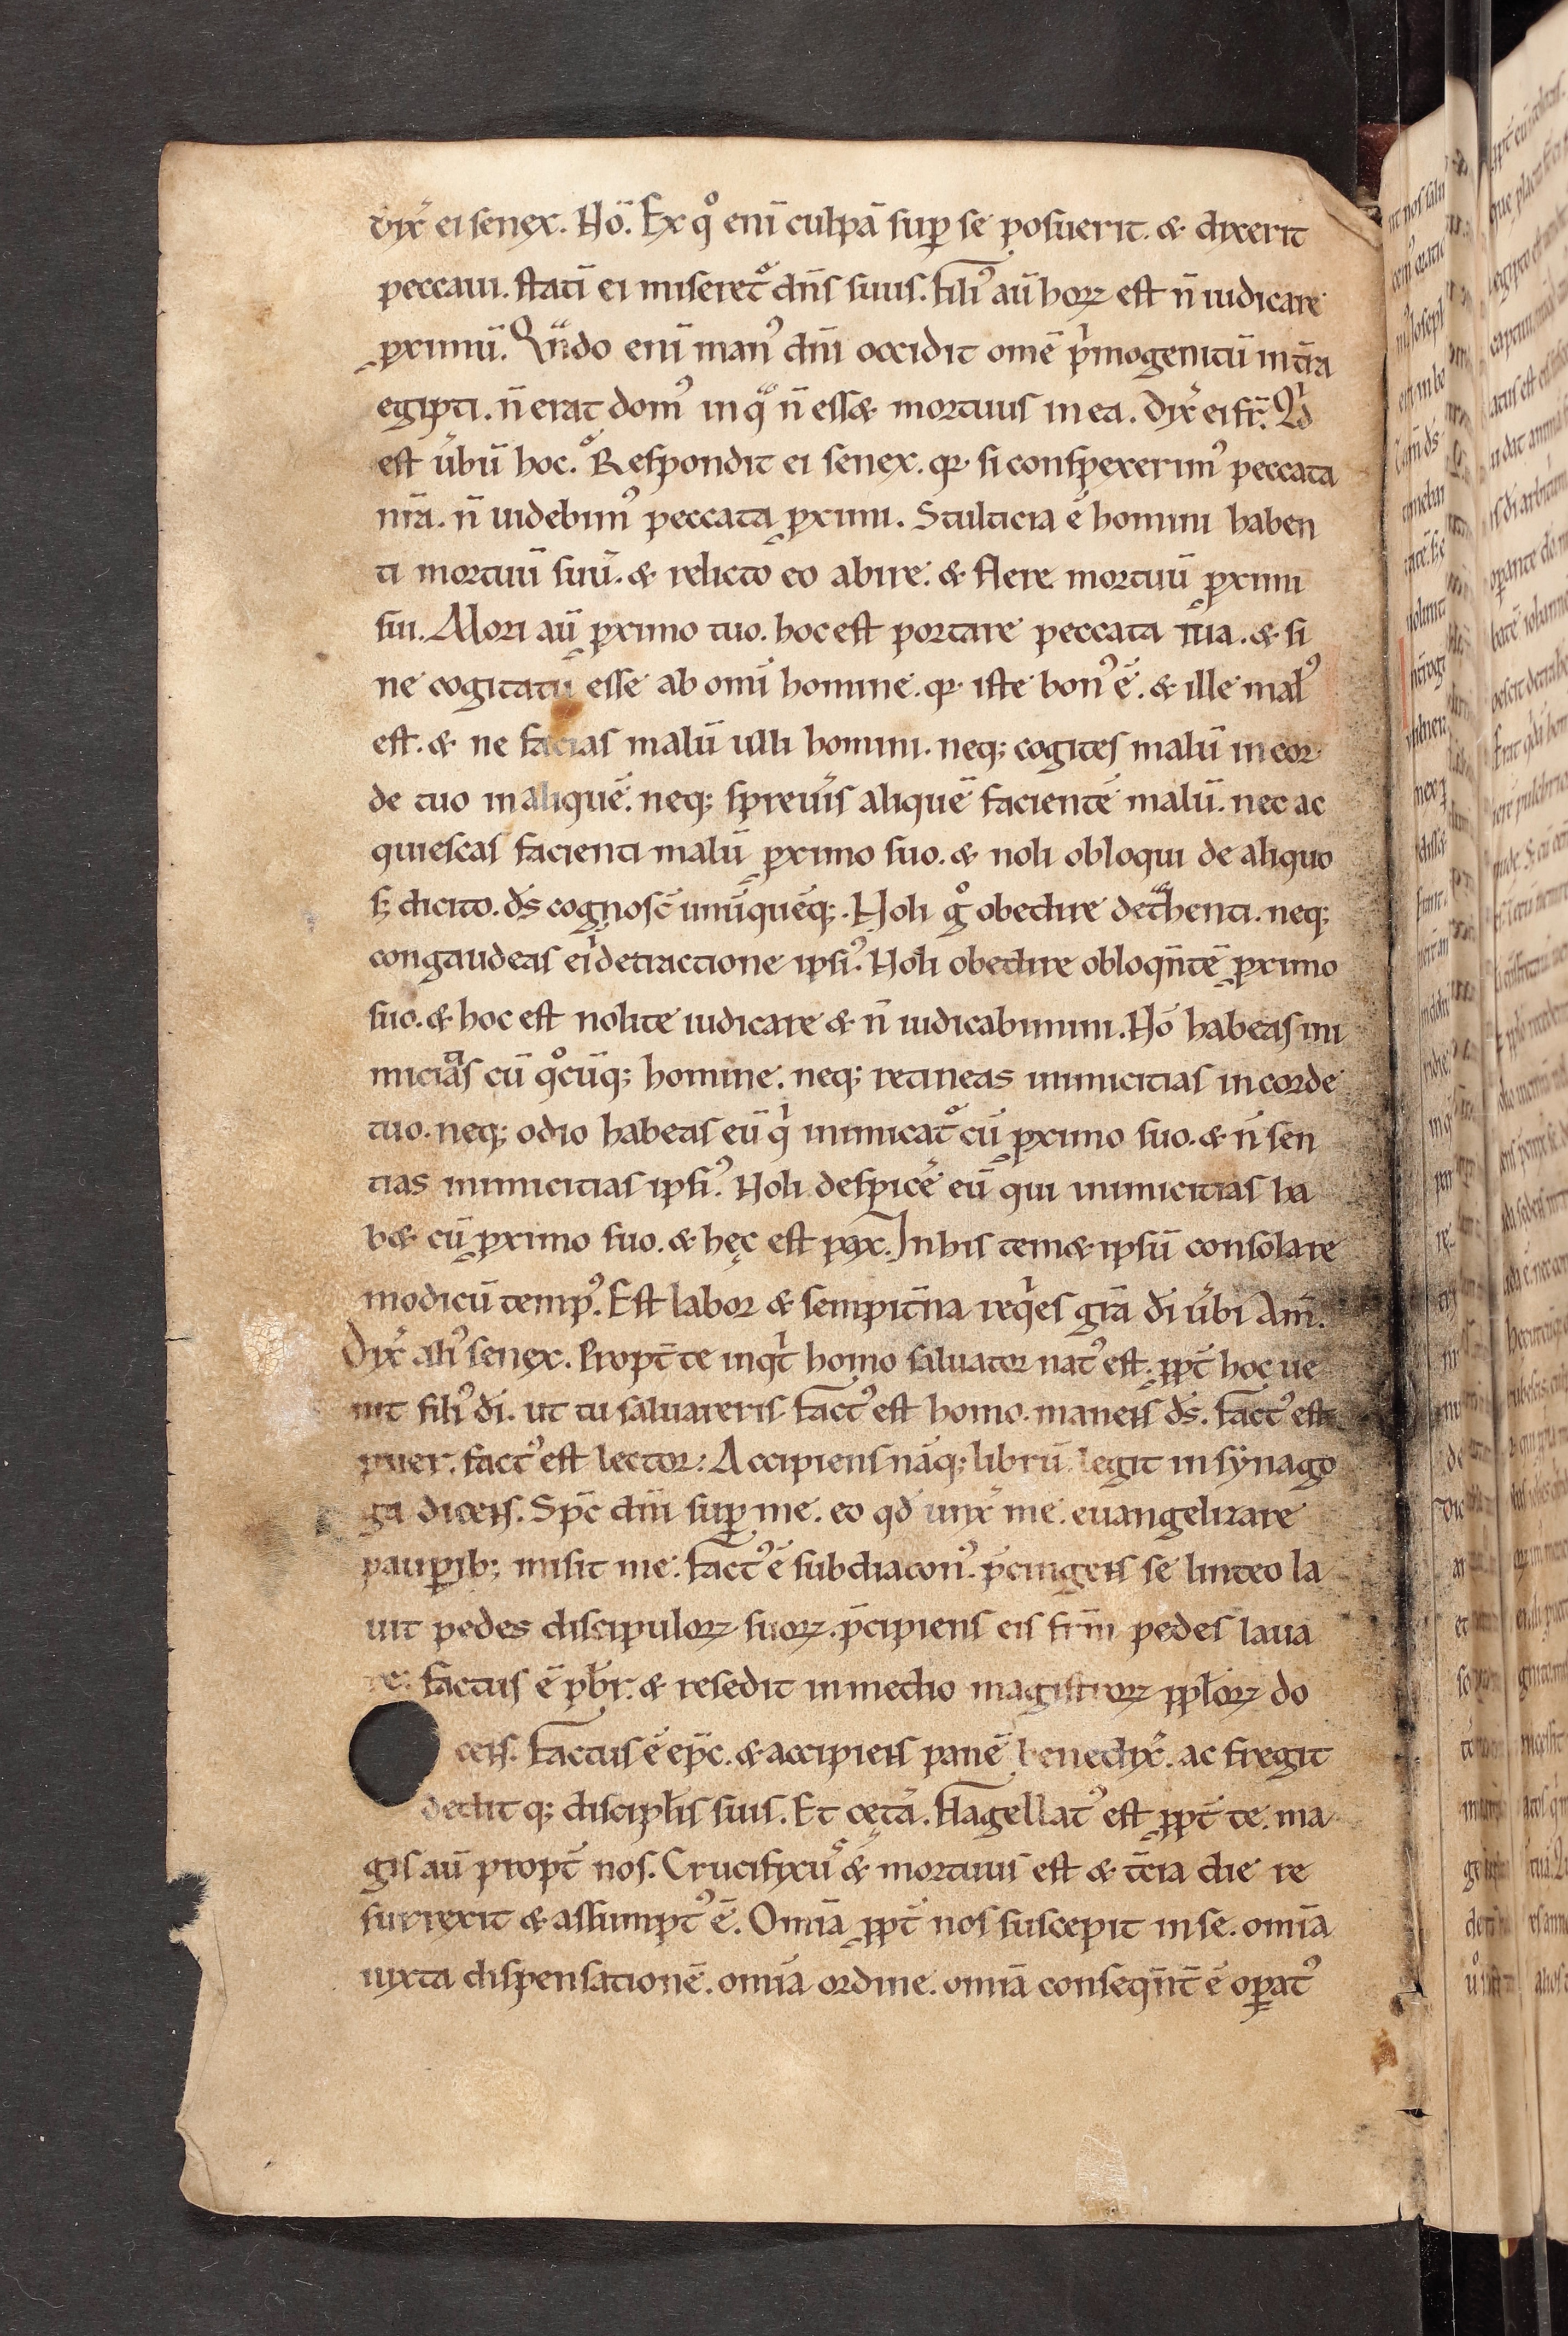 dix̄ ei senex. Nō. Ex q̊ enī culpā sup̱ se posuerit. & dixerit
peccaui. statī ei miseret᷒ dn̄s suus. Fili᷒ aū horꝝ est n̄ iudicare
ꝓximū. Qn̄do enī man᷒ dn̄i occidit omē pͥmogenitū in tr̄a
egipti. n̄ erat dom᷒ in qͣ n̄ ess& mortuus in ea. Dix̄ ei fr̄. Qͥd
est ūbū hoc. Respondit ei senex. qꝛ si conspexerim᷒ peccata
nr̄a. n̄ uidebim᷒ peccata ꝓximi. Stulticia ē homini haben
ti mortuū suū. & relicto eo abire. & flere mortuū ꝓximi
sui. Mori aū ꝓximo tuo. hoc est portare peccata tua. & si
ne cogitatu esse ab omī homine. qꝛ iste bon᷒ ē. & ille mal᷒
est. & ne facias malū ulli homini. neq; cogites malū in cor
de tuo in aliquē. neq; spreuīs aliquē facientē malū. nec ac
quiescas facienti malū ꝓximo suo. & noli obloqui de aliquo
s; dicito. ds̄ cognosc̄ unūquēq;. Noli g̊ obedire detͣhenti. neq;
congaudeas ei ͥ detractione ipsi᷒. Noli obedire obloqn̄tē ꝓximo
suo. & hoc est nolite iudicare & n̄ iudicabimini. Nō habeas ini
micitias cū q̊cūq; homine. neq; retineas inimicitias in corde
tuo. neq; odio habeas eū qͥ inimicat᷒ cū ꝓximo suo. & n̄ sen
tias inimicitias ipsi᷒. Noli despicē eū qui inimicitias ha
b& cū ꝓximo suo. & hęc est pax. In his tem& ipsū consolare
modicū temp᷒. Est labor & sempit̄na reqͥes grā dī ūbi Am̄.
Dix̄ ali᷒ senex. Propt̄ te inqͥt homo saluator nat᷒ est. ꝓpt̄ hoc ue
nit fili᷒ dī. ut tu saluareris. Fact᷒ est homo. manens ds̄. Fact᷒ est
puer. fact᷒ est lector: Accipiens nāq; librū legit in synago
ga dicens. Sp̄c dn̄i sup̱ me. eo qd̄ unx̄ me. euangelizare
paup̱ib; misit me. Fact᷒ ē subdiacon᷒. p̄cingens se linteo la
uit pedes discipulorꝝ suorꝝ. p̄cipiens eis frm̄ pedes laua
re. Factus ē pb̄r. & resedit in medio magistrorꝝ ppl̄orꝝ do
cens. Factus ē ep̄c. & accipiens panē benedix̄. ac fregit
dedit q; discipl̄is suis. Et cęt̄a. Flagellat᷒ est ꝓpt̄ te. ma
gis aū propt̄ nos. Crucifixu᷒ & mortuus est & t̄cia die re
surrexit & assumpt᷒ ē. Omīa ꝓpt̄ nos suscepit in se. omīa
iuxta dispensationē. omīa ordine. omīa conseqn̄t ē op̱at᷒